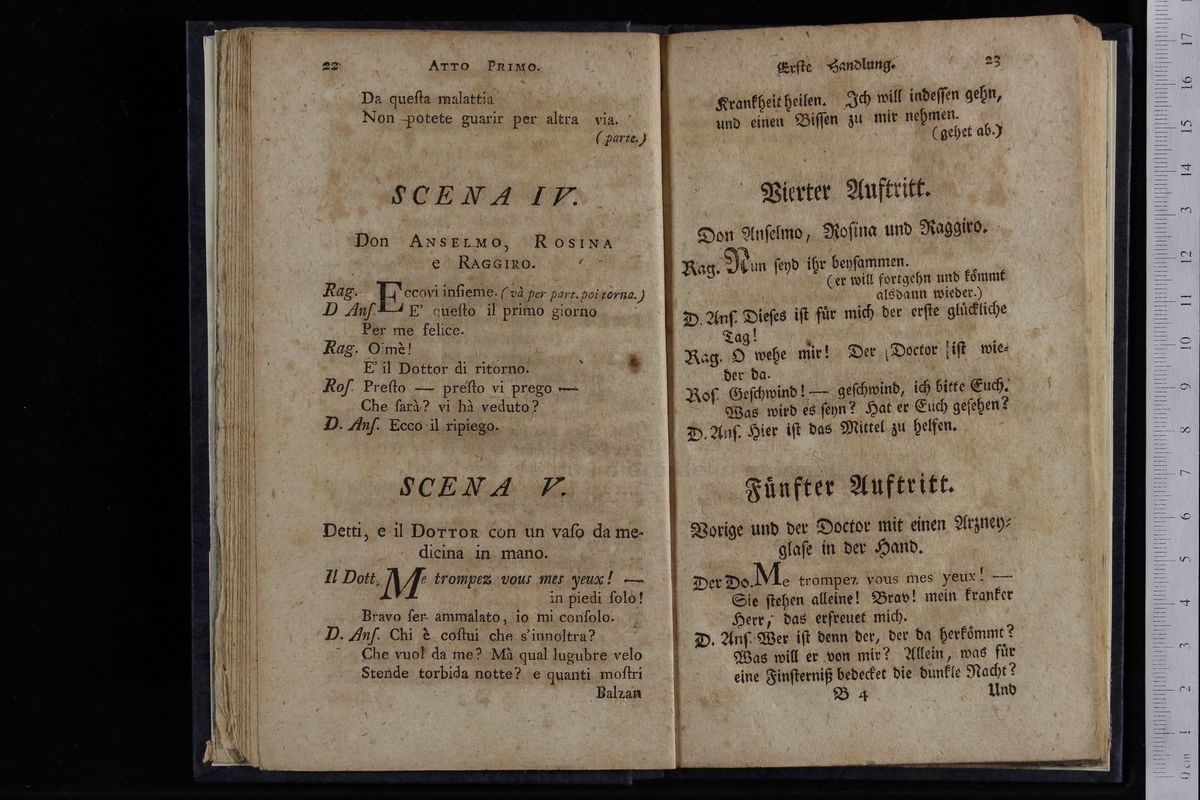 22 ATTO PRIMO.
Da queſta malattia
Non potete guarir per altra via.
(parte.)
SCENA IV.
Don ANSELMO, ROSINA
e RAGGIRO.
Rag. Eccovi inſieme. (và per part. poi torna.)
D Anſ. E' queſto il primo giorno
Per me felice.
Rag. O mè!
E' il Dottor di ritorno.
Roſ. Preſto — preſto vi prego —
Che ſarà? vi hà veduto?
D. Anſ. Ecco il ripiego.
SCENA V.
Detti, e il DOTTOR con un vaſo da me-
dicina in mano.
Il Dott. Me trompez vous mes yeux! —
in piedi ſolo!
Bravo ſer ammalato, io mi conſolo.
D. Anſ. Chi è coſtui che s'innoltra?
Che vuol da me? Mà qual lugubre velo
Stende torbida notte? e quanti moſtri
Balzan
Erſte Handlung. 23
Krankheit heilen. Ich will indeſſen gehn,
und einen Biſſen zu mir nehmen.
(gehet ab.)
Vierter Auftritt.
Don Anſelmo, Roſina und Raggiro.
Rag. Nun ſeyd ihr beyſammen.
(er will fortgehn und kömmt
alsdann wieder.)
D. Anſ. Dieſes iſt für mich der erſte glückliche
Tag!
Rag. O wehe mir! Der Doctor iſt wie-
der da.
Roſ. Geſchwind! — geſchwind, ich bitte Euch.
Was wird es ſeyn? Hat er Euch geſehen?
D. Anſ. Hier iſt das Mittel zu helfen.
Fünfter Auftritt.
Vorige und der Doctor mit einen Arzney-
glaſe in der Hand.
Der Do. Me trompez vous mes yeux! —
Sie ſtehen alleine! Brav! mein kranker
Herr, das erfreuet mich.
D. Anſ. Wer iſt denn der, der da herkömmt?
Was will er von mir? Allein, was für
eine Finſterniß bedecket die dunkle Nacht?
B 4 Und
0 cm 1 2 3 4 5 6 7 8 9 10 3 14 15 16 17